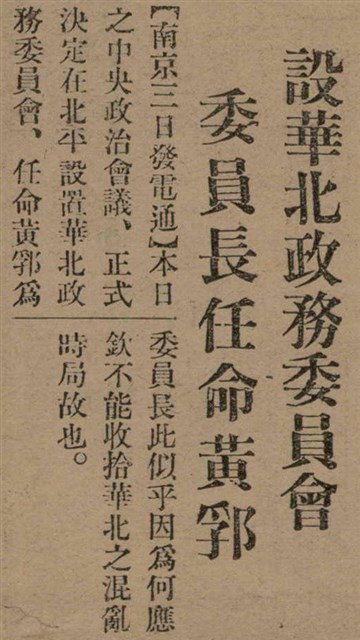 設華北政務委員會
委員長任命黃郛
【南京三日發電通】本日
之中央政治會議、正式
決定在北平設置華北政
務委員會、任命黃郛爲
委員長此似乎因爲何應
欽不能收拾華北之混亂
時局故也。